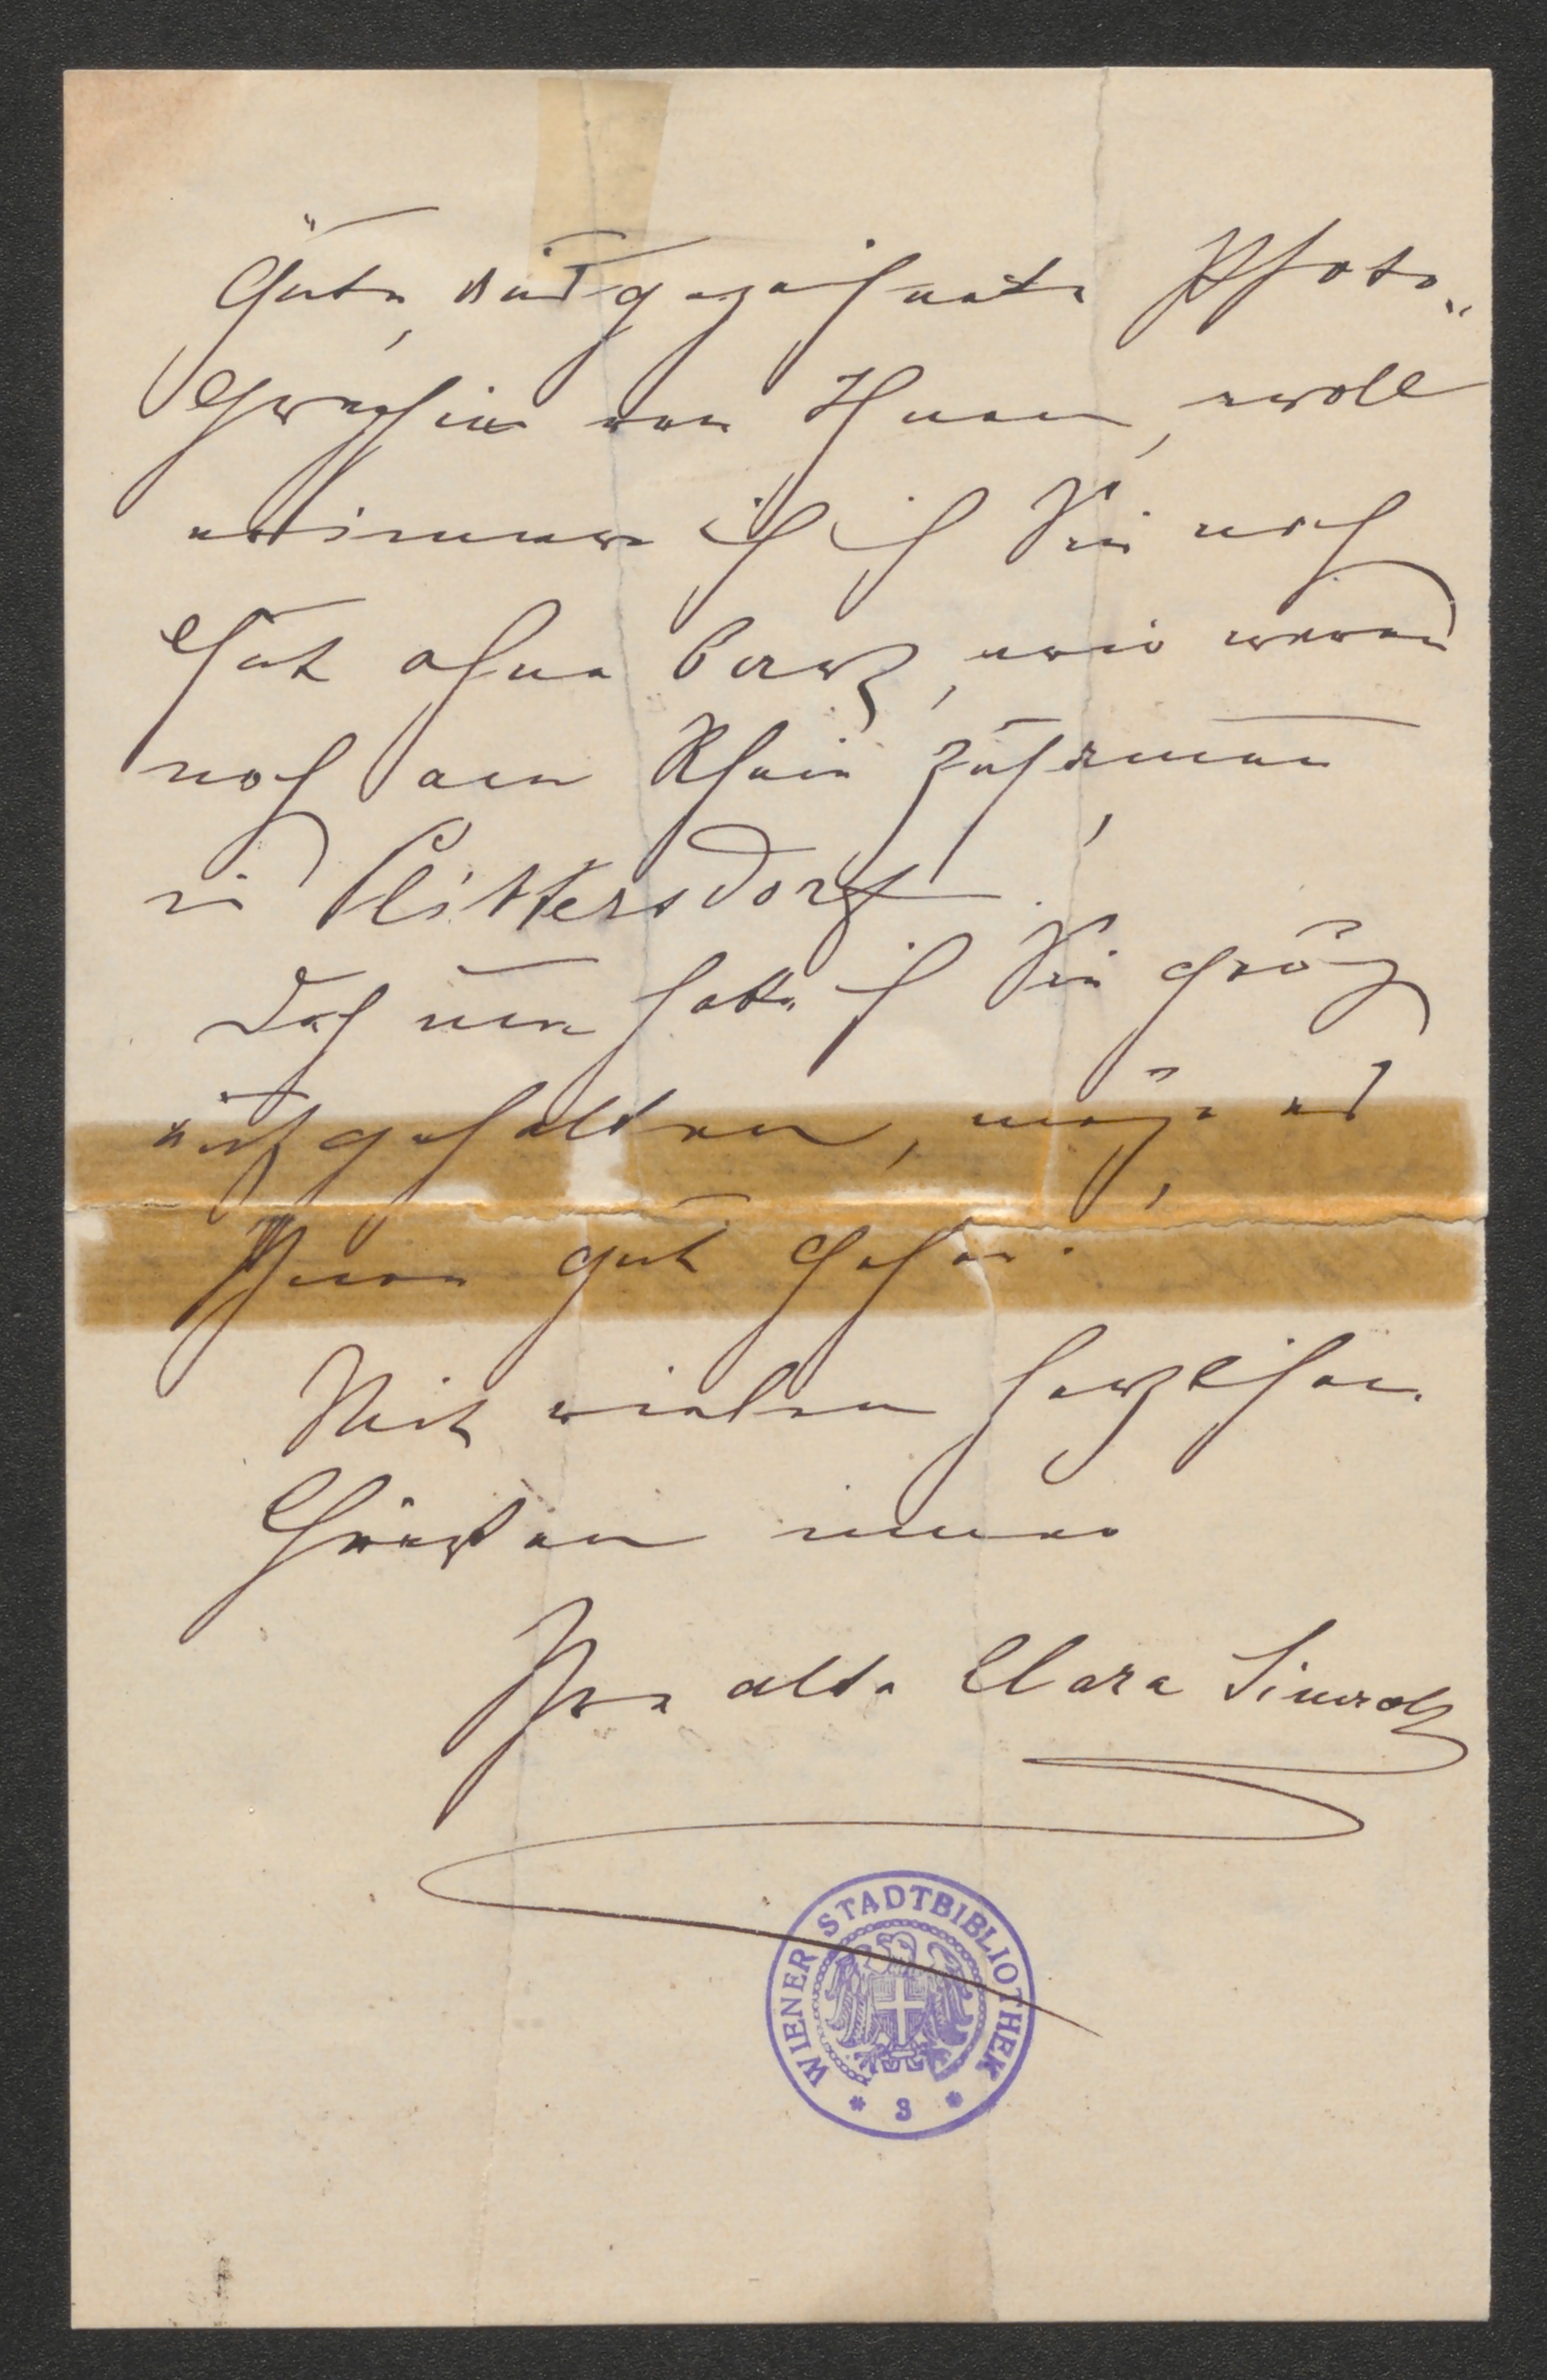 Gute, ausgezeichnete Photo„
Graphie von Ihnen, woll
erinnere ich ich Sie noch
Gut ohne Bart, wir waren
noch am Rhein zusammen,
in Plittersdorf.
Doch nun habe ich Sie genug
aufgehalten, möge es
Ihnen gut gehen.
Mit vielen herzlichen
Grüßen immer
Ihre alte Clara Simrock
WIENER STADTBIBLIOTHEK
* 3 *